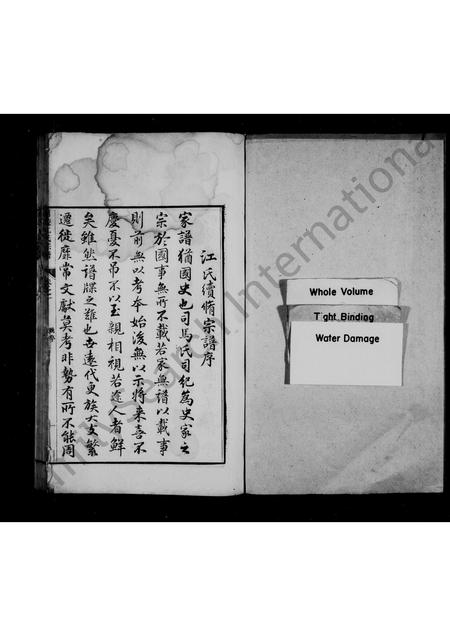 江氏續脩宗譜序
家譜猶國史也司馬氏司紀為史家之
宗於國事無所不載若家無譜以載事
則前無以考本始後無以示將来喜不
慶憂不吊不以至親相視若途人者鮮
矣雖然譜牒之難也世遠代更族大支繁
遷徙靡常文獻莫考非勢有所不能周
Whole Volume
Tight Binding
Water Damage
International